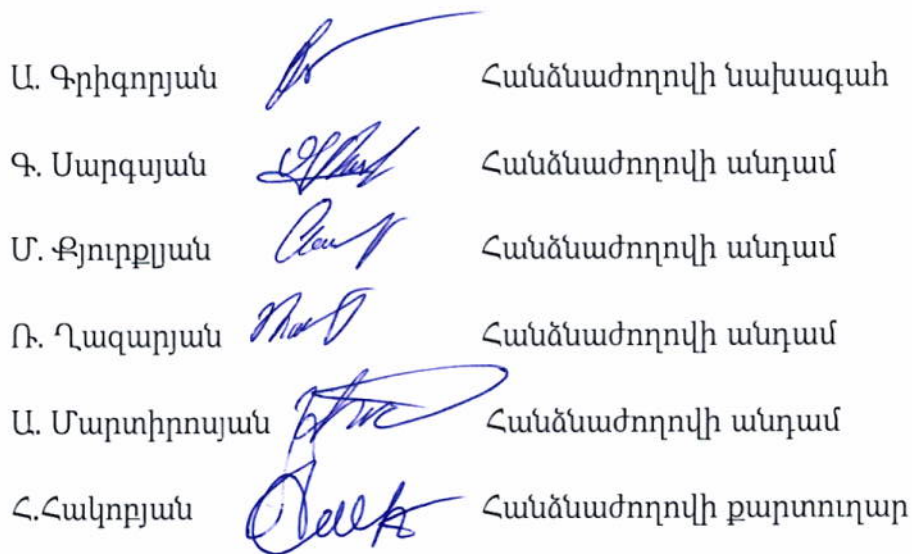 Ա. Գրիգորյան Հանձնաժողովի նախագահ
Գ. Սարգսյան Հանձնաժողովի անդամ
Մ. Քյուրքլյան Հանձնաժողովի անդամ
Ռ. Ղազարյան Հանձնաժողովի անդամ
Ա. Մարտիրոսյան Հանձնաժողովի անդամ
Հ.Հակոբյան Հանձնաժողովի քարտուղար